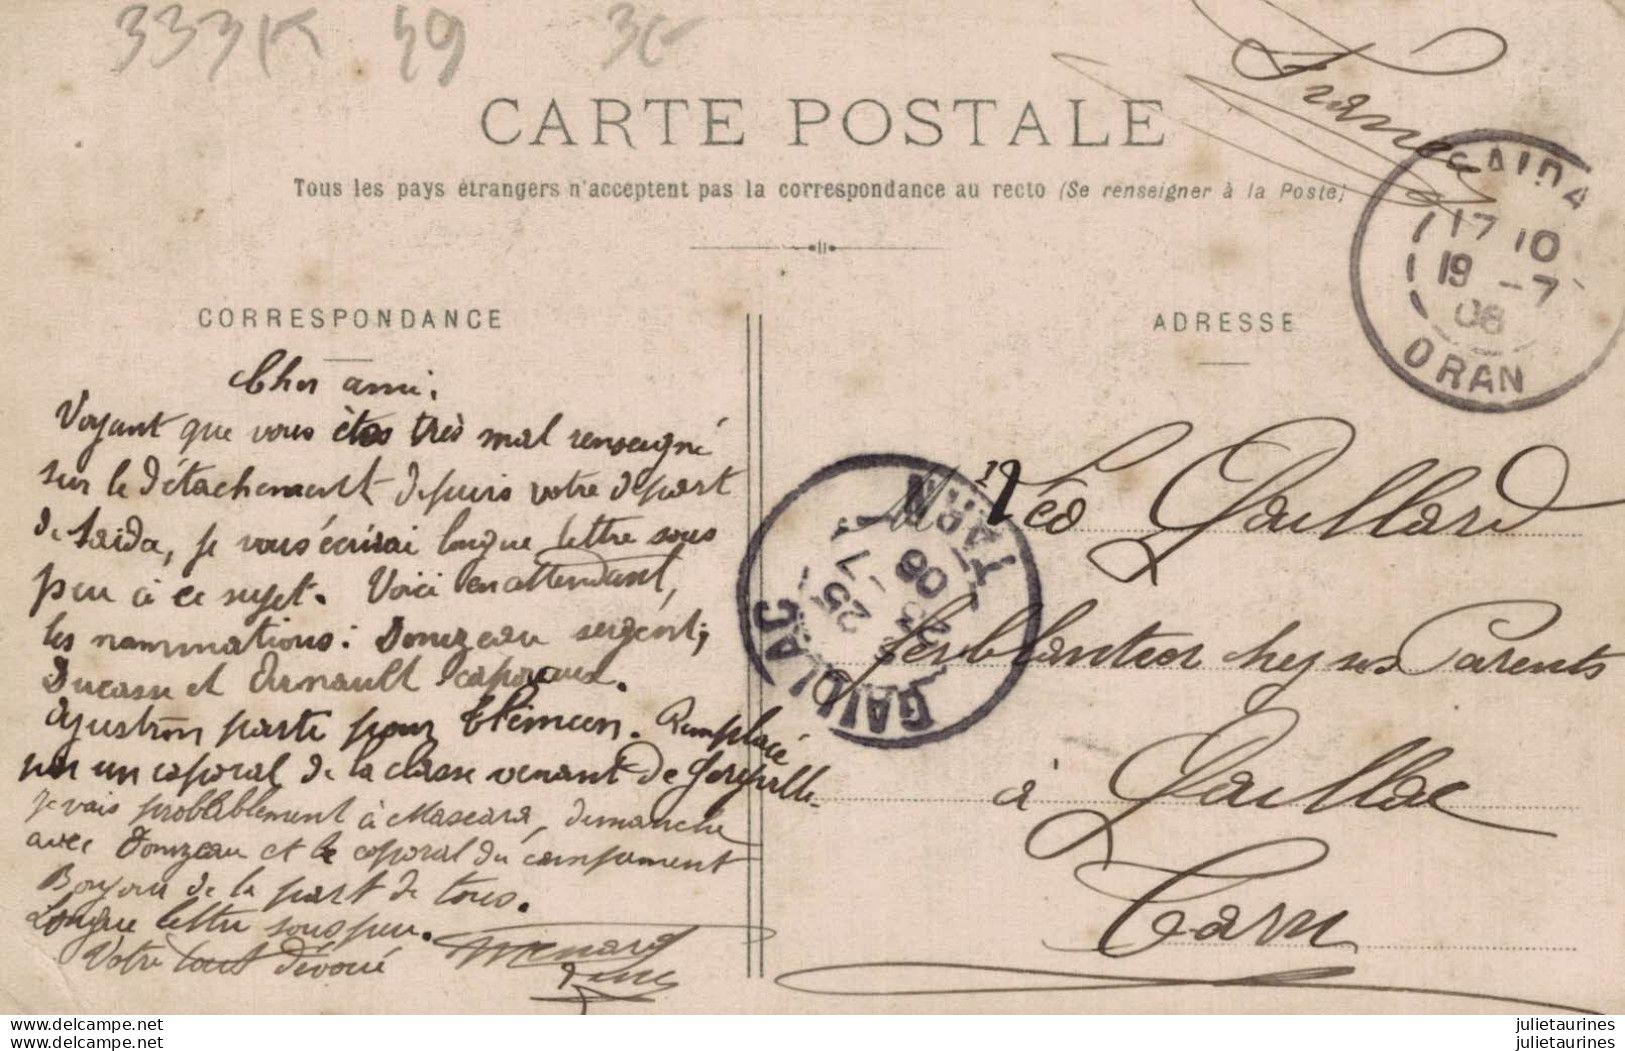 333K 49 3€
CARTE POSTALE
Tous les pays étrangers n'acceptent pas la correspondance au recto (Se renseigner à la Poste)
France
SAIDA
17 10
19 -7
08
ORAN
CORRESPONDANCE
ADRESSE
Cher ami.
Voyant que vous êtes très mal renseigné
sur le détachement depuis votre départ
de Saida, je vous écrirai longue lettre sous
peu à ce sujet. Voici en attendant,
les nominations: Donizeau sergent;
Ducasse et Arnault caporaux.
Ajustron parti pour Tlémcen. Remplacé
par un caporal de la classe venant de Géryville.
Je vais probablement à Mascara, dimanche
avec Donizeau et le caporal du campement
Bonjour de la part de tous.
Longue lettre sous peu.
Votre tout dévoué
Menard
GAILLAC
TARN
25
7
08
Mr Léo Gaillard
ferblantier chez ses Parents
à Gaillac
Tarn
julietaurines.com
julietaurines.com
julietaurines
julietaurines